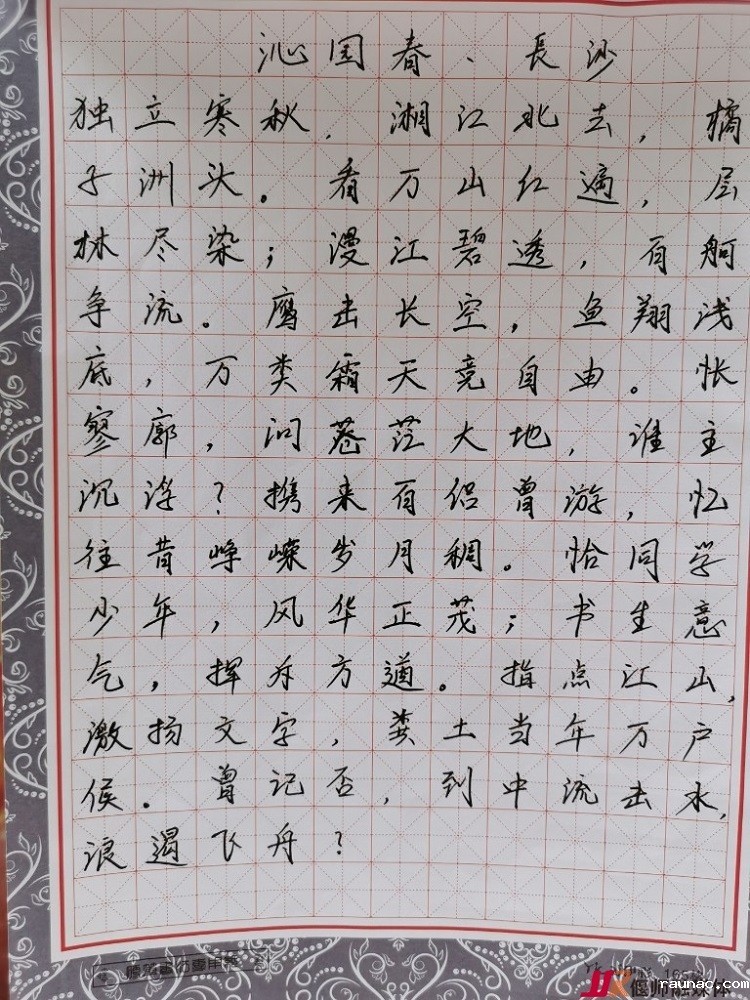 沁园春、長沙
独立寒秋．湘江北去，橘
子洲头。看万山红遍，层
林尽染；漫江碧透，百舸
争流。鹰击长空，鱼翔浅
底，万类霜天竞自由。怅
寥廓，问苍茫大地，谁主
沉浮？携来百侣曾游，忆
往昔峥嵘岁月稠。恰同学
少年，风华正茂；书生意
气，挥斥方遒。指点江山，
激扬文字，粪土当年万户
候．曾记否，到中流击水，
浪遏飞舟？
偃师融媒体
raunac.com